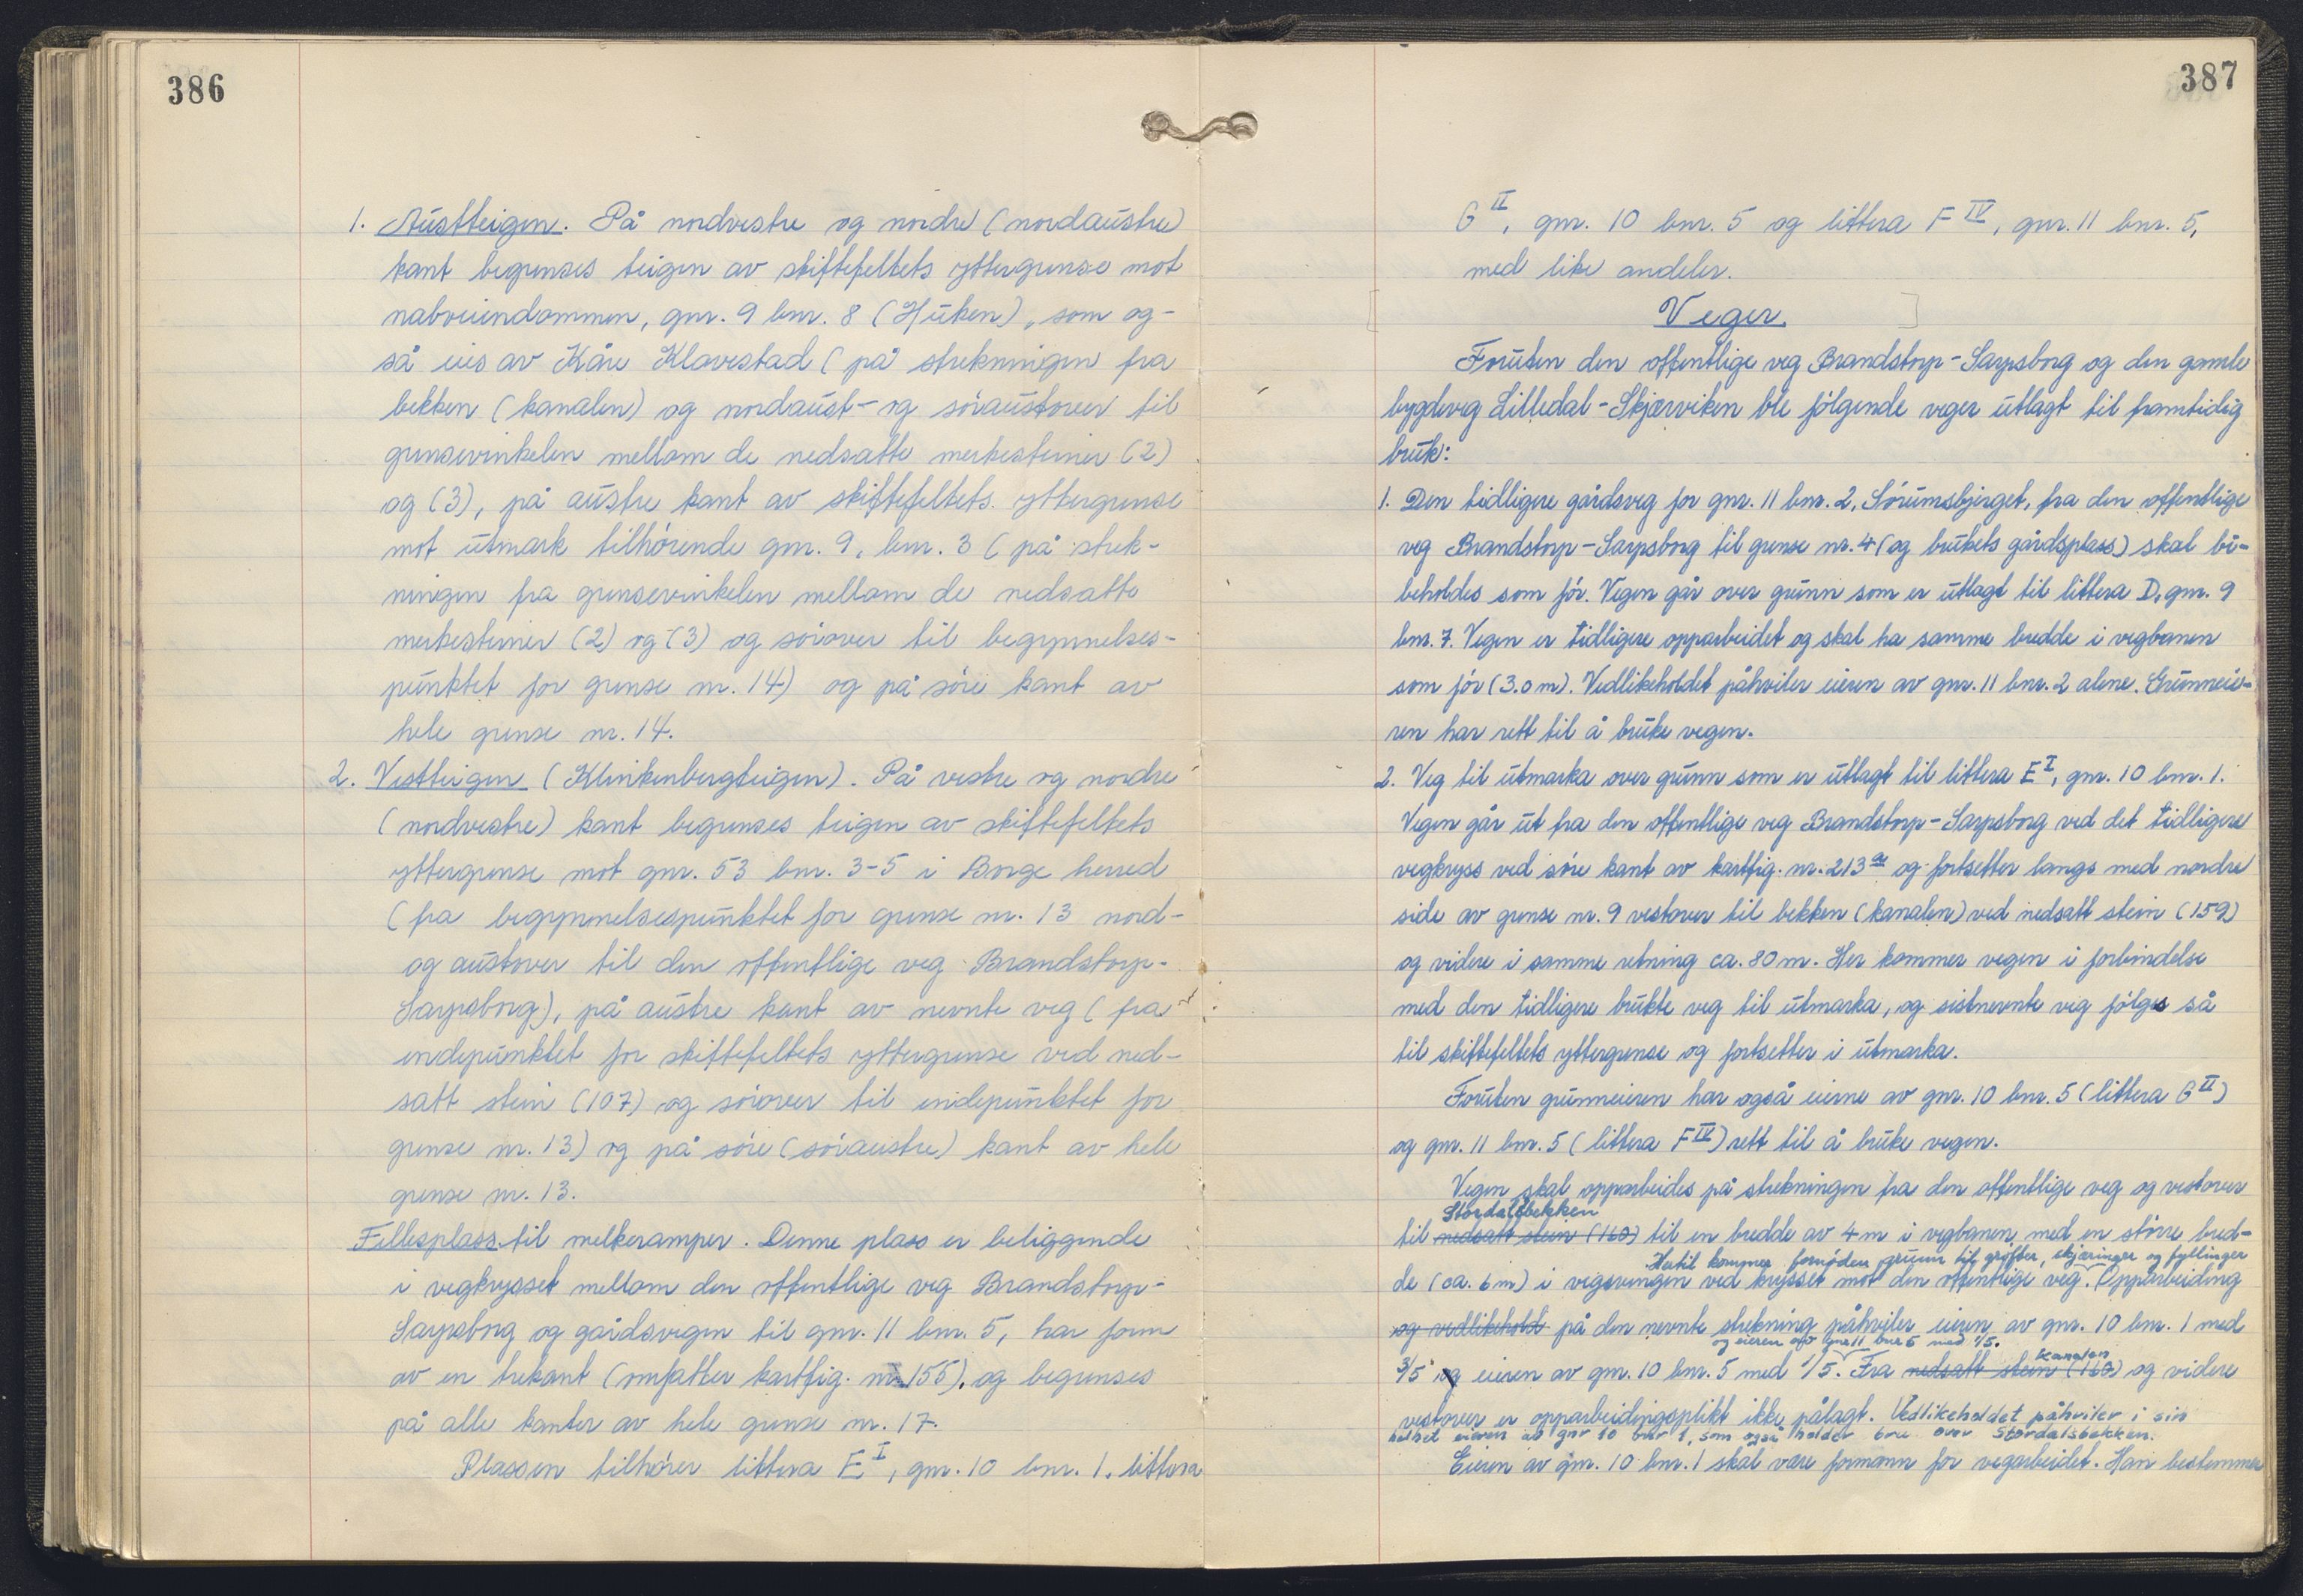 386
1. Austteigen. På nordvestre og nordre (nordaustre)
kant begrenses teigen av skiftefeltets yttergrense mot
naboeiendommen, gnr. 9 bnr. 8 (Huken), som og-
så eies av Kåre Klavestad (på strekningen fra
bekken (kanalen) og nordaust- og søraustover til
grensevinkelen mellom de nedsatte merkesteiner (2)
og (3), på austre kant av skiftefeltets yttergrense
mot utmark tilhørende gnr. 9, bnr. 3 (på strek-
ningen fra grensevinkelen mellom de nedsatte
merkesteiner (2) og (3) og sørover til begynnelses-
punktet for grense nr. 14) og på søre kant av
hele grense nr. 14.
2. Vestteigen (Klinkenbergteigen). På vestre og nordre
(nordvestre) kant begrenses teigen av skiftefeltets
yttergrense mot gnr. 53 bnr. 3-5 i Borge herred
(fra begynnelsespunktet for grense nr. 13 nord-
og austover til den offentlige veg Brandstorp-
Sarpsborg), på austre kant av nevnte veg (fra
endepunktet for skiftefeltets yttergrense ved ned-
satt stein (107) og sørover til endepunktet for
grense nr. 13) og på søre (søraustre) kant av hele
grense nr. 13.
Fellesplass til melkeramper. Denne plass er beliggende
i vegkrysset mellom den offentlige veg Brandstorp-
Sarpsborg og gårdsvegen til gnr. 11 bnr. 5, har form
av en trekant (omfatter kartfig. nr. 155), og begrenses
på alle kanter av hele grense nr. 17.
Plassen tilhører littera E I, gnr. 10 bnr. 1, littera
387
G II, gnr. 10 bnr. 5 og littera F IV, gnr. 11 bnr. 5,
med like andeler.
Veger.
Foruten den offentlige veg Brandstorp-Sarpsborg og den gamle
bygdeveg Lilledal-Skjærviken ble følgende veger utlagt til framtidig
bruk:
1. Den tidligere gårdsveg for gnr. 11 bnr. 2, Sørumsbjerget, fra den offentlige
veg Brandstorp-Sarpsborg til grense nr. 4 (og brukets gårdsplass) skal bi-
beholdes som før. Vegen går over grunn som er utlagt til littera D, gnr. 9
bnr. 7. Vegen er tidligere opparbeidet og skal ha samme bredde i vegbanen
som før (3.0 m). Vedlikeholdet påhviler eieren av gnr. 11 bnr. 2 alene. Grunneie-
ren har rett til å bruke vegen.
2. Veg til utmarka over grunn som er utlagt til littera E I, gnr. 10 bnr. 1.
Vegen går ut fra den offentlige veg Brandstorp-Sarpsborg ved det tidligere
vegkryss ved søre kant av kartfig. nr. 213 a og fortsetter langs med nordre
side av grense nr. 9 vestover til bekken (kanalen) ved nedsatt stein (159)
og videre i samme retning ca. 80 m. Her kommer vegen i forbindelse
med den tidligere brukte veg til utmarka, og sistnevnte veg følges så
til skiftefeltets yttergrense og fortsetter i utmarka.
Foruten grunneieren har også eierne av gnr. 10 bnr. 5 (littera G II)
og gnr. 11 bnr. 5 (littera F IV) rett til å bruke vegen.
Vegen skal opparbeides på strekningen fra den offentlige veg og vestover
Stordalsbekken
til nedsatt stein (160) til en bredde av 4 m i vegbanen, med en større bred-
Hertil kommer fornøden grunn til grøfter, skjæringer og fyllinger
de (ca. 6 m) i vegsvingen ved krysset mot den offentlige veg. Opparbeiding
og vedlikehold på den nevnte strekning påhviler eieren av gnr. 10 bnr. 1 med
og eieren av gnr 11 bnr 5 med 1/5.
kanalen
3/5 og eieren av gnr. 10 bnr. 5 med 1/5. Fra nedsatt stein (160) og videre
vestover er opparbeidingsplikt ikke pålagt. Vedlikeholdet påhviler i sin
helhet eieren av gnr 10 bnr 1, som også holder bru over Stordalsbekken.
Eieren av gnr. 10 bnr. 1 skal være formann for vegarbeidet. Han bestemmer